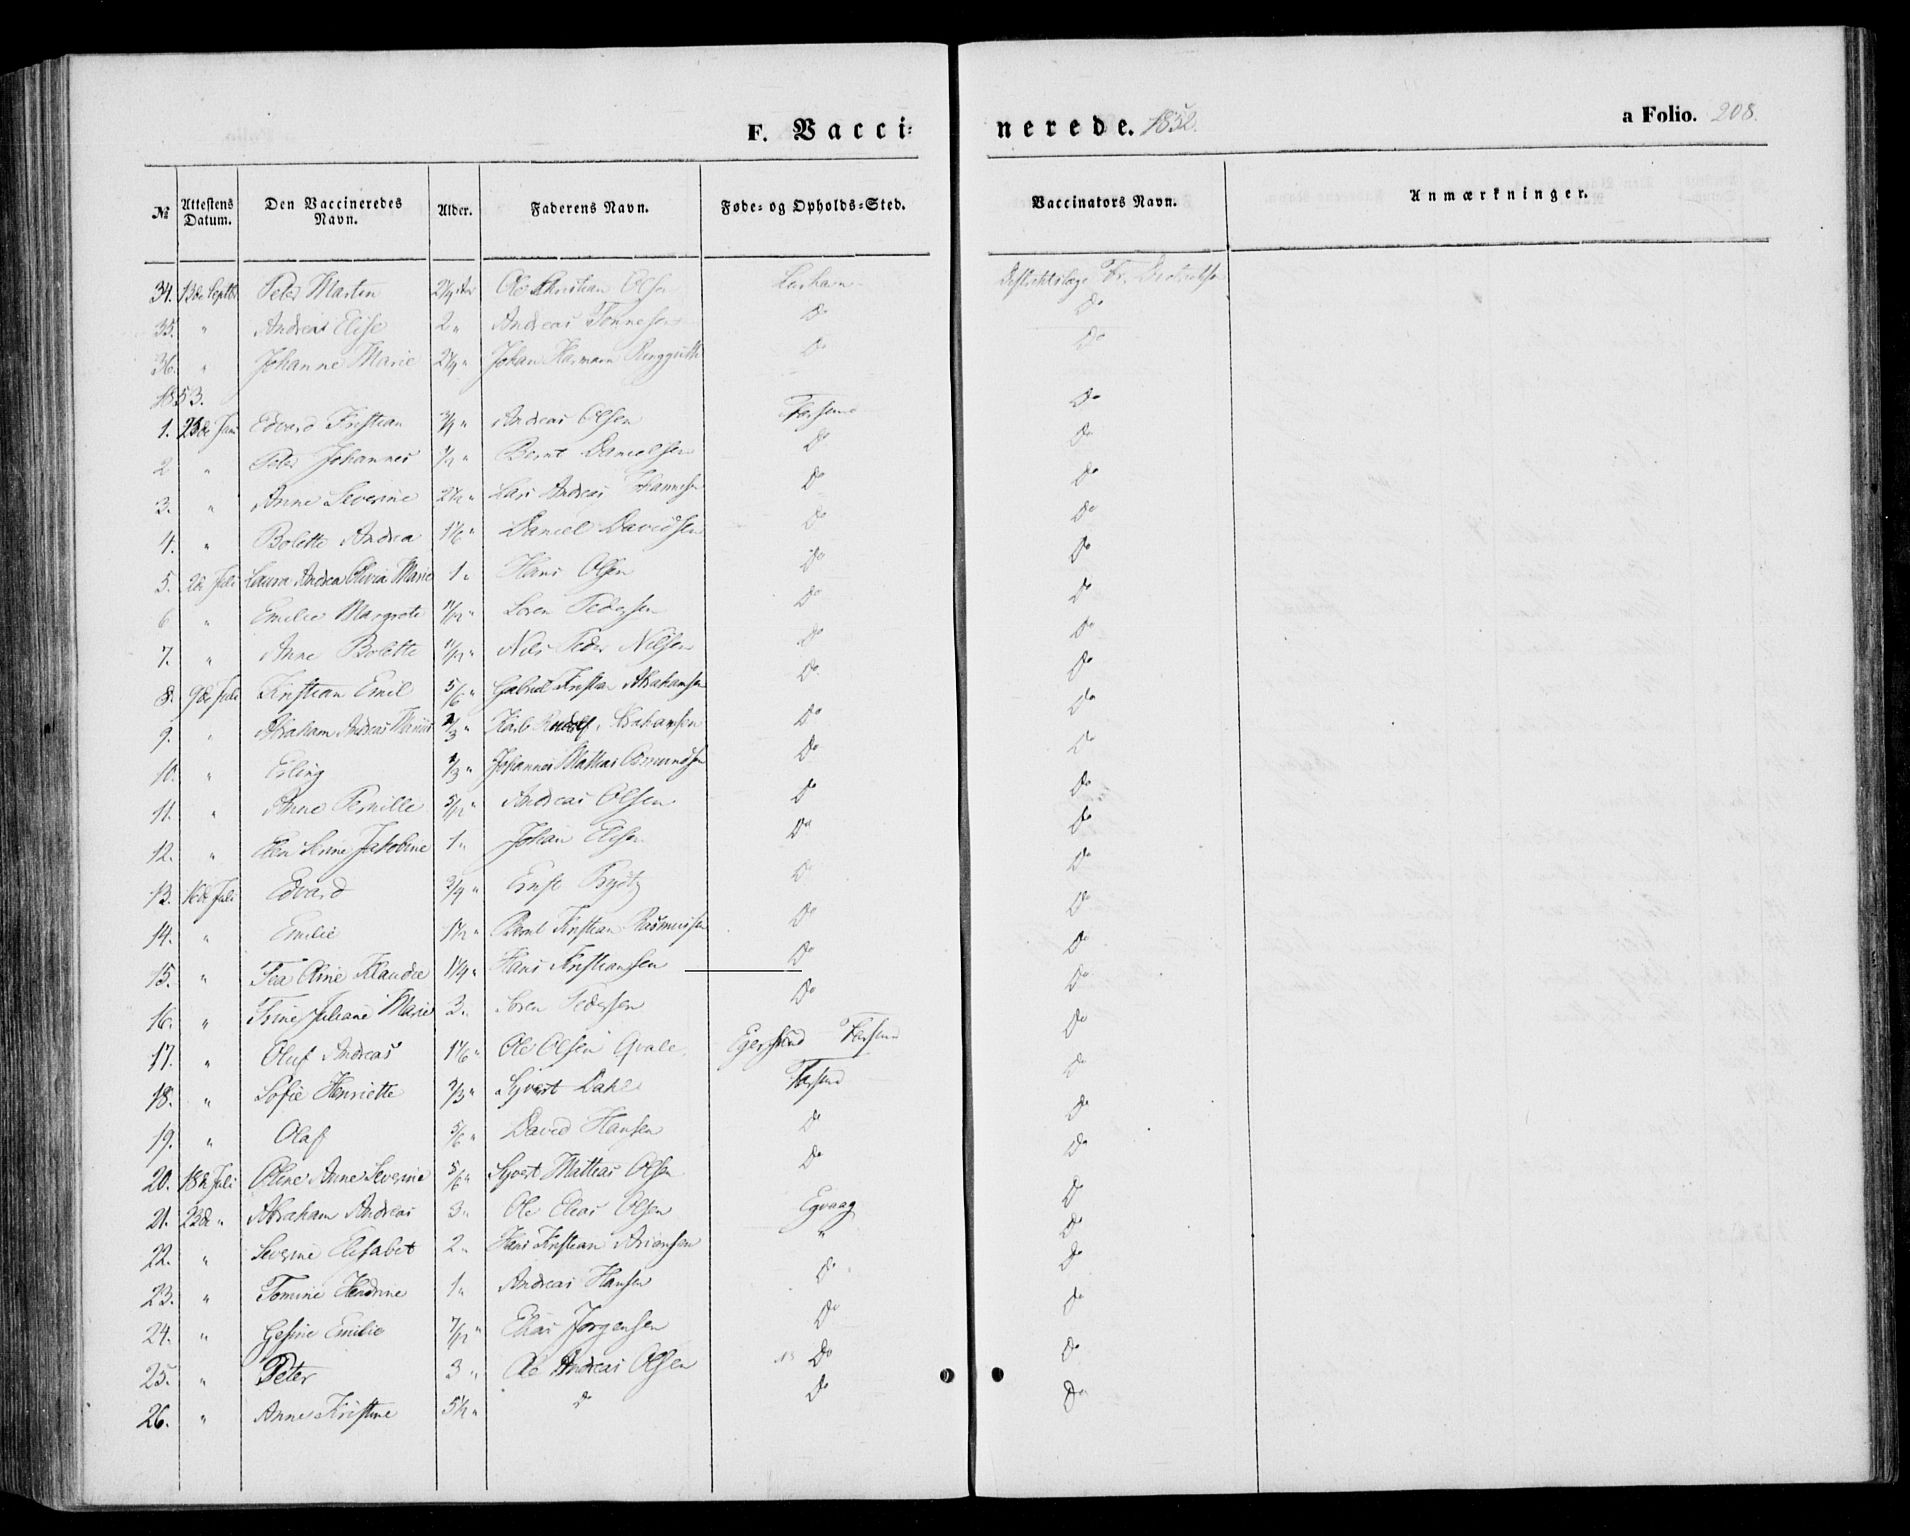 F. Vacci=
nerede. 1852.
a Folio. 208.
№ Attestens Datum. Den Vaccineredes Navn. Alder. Faderens Navn. Føde- og Opholds-Sted. Vaccinators Navn. Anmærkninger.
34. 13de Septbr Peder Martin Ole Christian Olsen
35. " Andrea Elise 2 " Andreas Tønnesen Do Do
36. " Johanne Marie 2¼ " Johan Herman Do Do
1853.
1. 25de Jan Edvard Kristian ¾ " Andreas Olsen Farsund Do
2 " Peder Johannes ½ " Bernt Danielsen Do Do
3. " Anne Severine 2½ " Lars Andreas Johannesen Do Do
4. " Bolette Andrea 1⅙ " Daniel Davidsen Do Do
5. 2de Juli Laura Andrea Olivia Marie 1 " Hans Olsen Do Do
6 " Emilie Margrete 11/12 " Søren Pedersen Do Do
7. " Anne Bolette 11/12 " Nils Peder Nilsen Do Do
8. 9de Juli Kristian Emil 5/6 " Gabriel Kristian Abrahamsen Do Do
9. " Abraham Andreas Marius 2/3 " Karl Rudolf Abrahamsen Do Do
10. " Erling 2/3 " Johannes Mathias Osmundsen Do Do
11. " Anne Pernille 5/12 " Andreas Olsen Do Do
12. " Elen Anne Jakobine 1 " Johan Elisen Do Do
13. 16de Juli Edvard ¾ " Ernst Prydtz Do Do
14. " Emilie 1½ " Bernt Kristian Rasmussen Do Do
15. " Tea Oline Klaudia 1¼ " Hans Kristiansen Do Do
16. " Trine Juliane Marie 3 " Søren Pedersen Do Do
17. " Oluf Andreas 1⅙ " Ole Olsen Qvale Egersund Farsund Do
18. " Sofie Henriette 2/3 " Syvert Dahl Farsund Do
19. " Olaf 5/6 " David Hansen Do Do
20. 18de Juli Oline Anne Severine 5/6 " Syvert Mathias Olsen Do Do
21. 23de " Abraham Andreas 3 " Ole Elias Olsen Egvaag Do
22. " Severine Elisabet 2 " Hans Kristian Adriansen " Do
23. " Tomine Hendrine 1 " Andreas Hansen Do Do
24. " Gesine Emilie 7/12 " Elias Jørgensen Do Do
25. " Peter 3 " Ole Andreas Olsen Do Do
26. " Anne Kristine 5½ " do Do Do